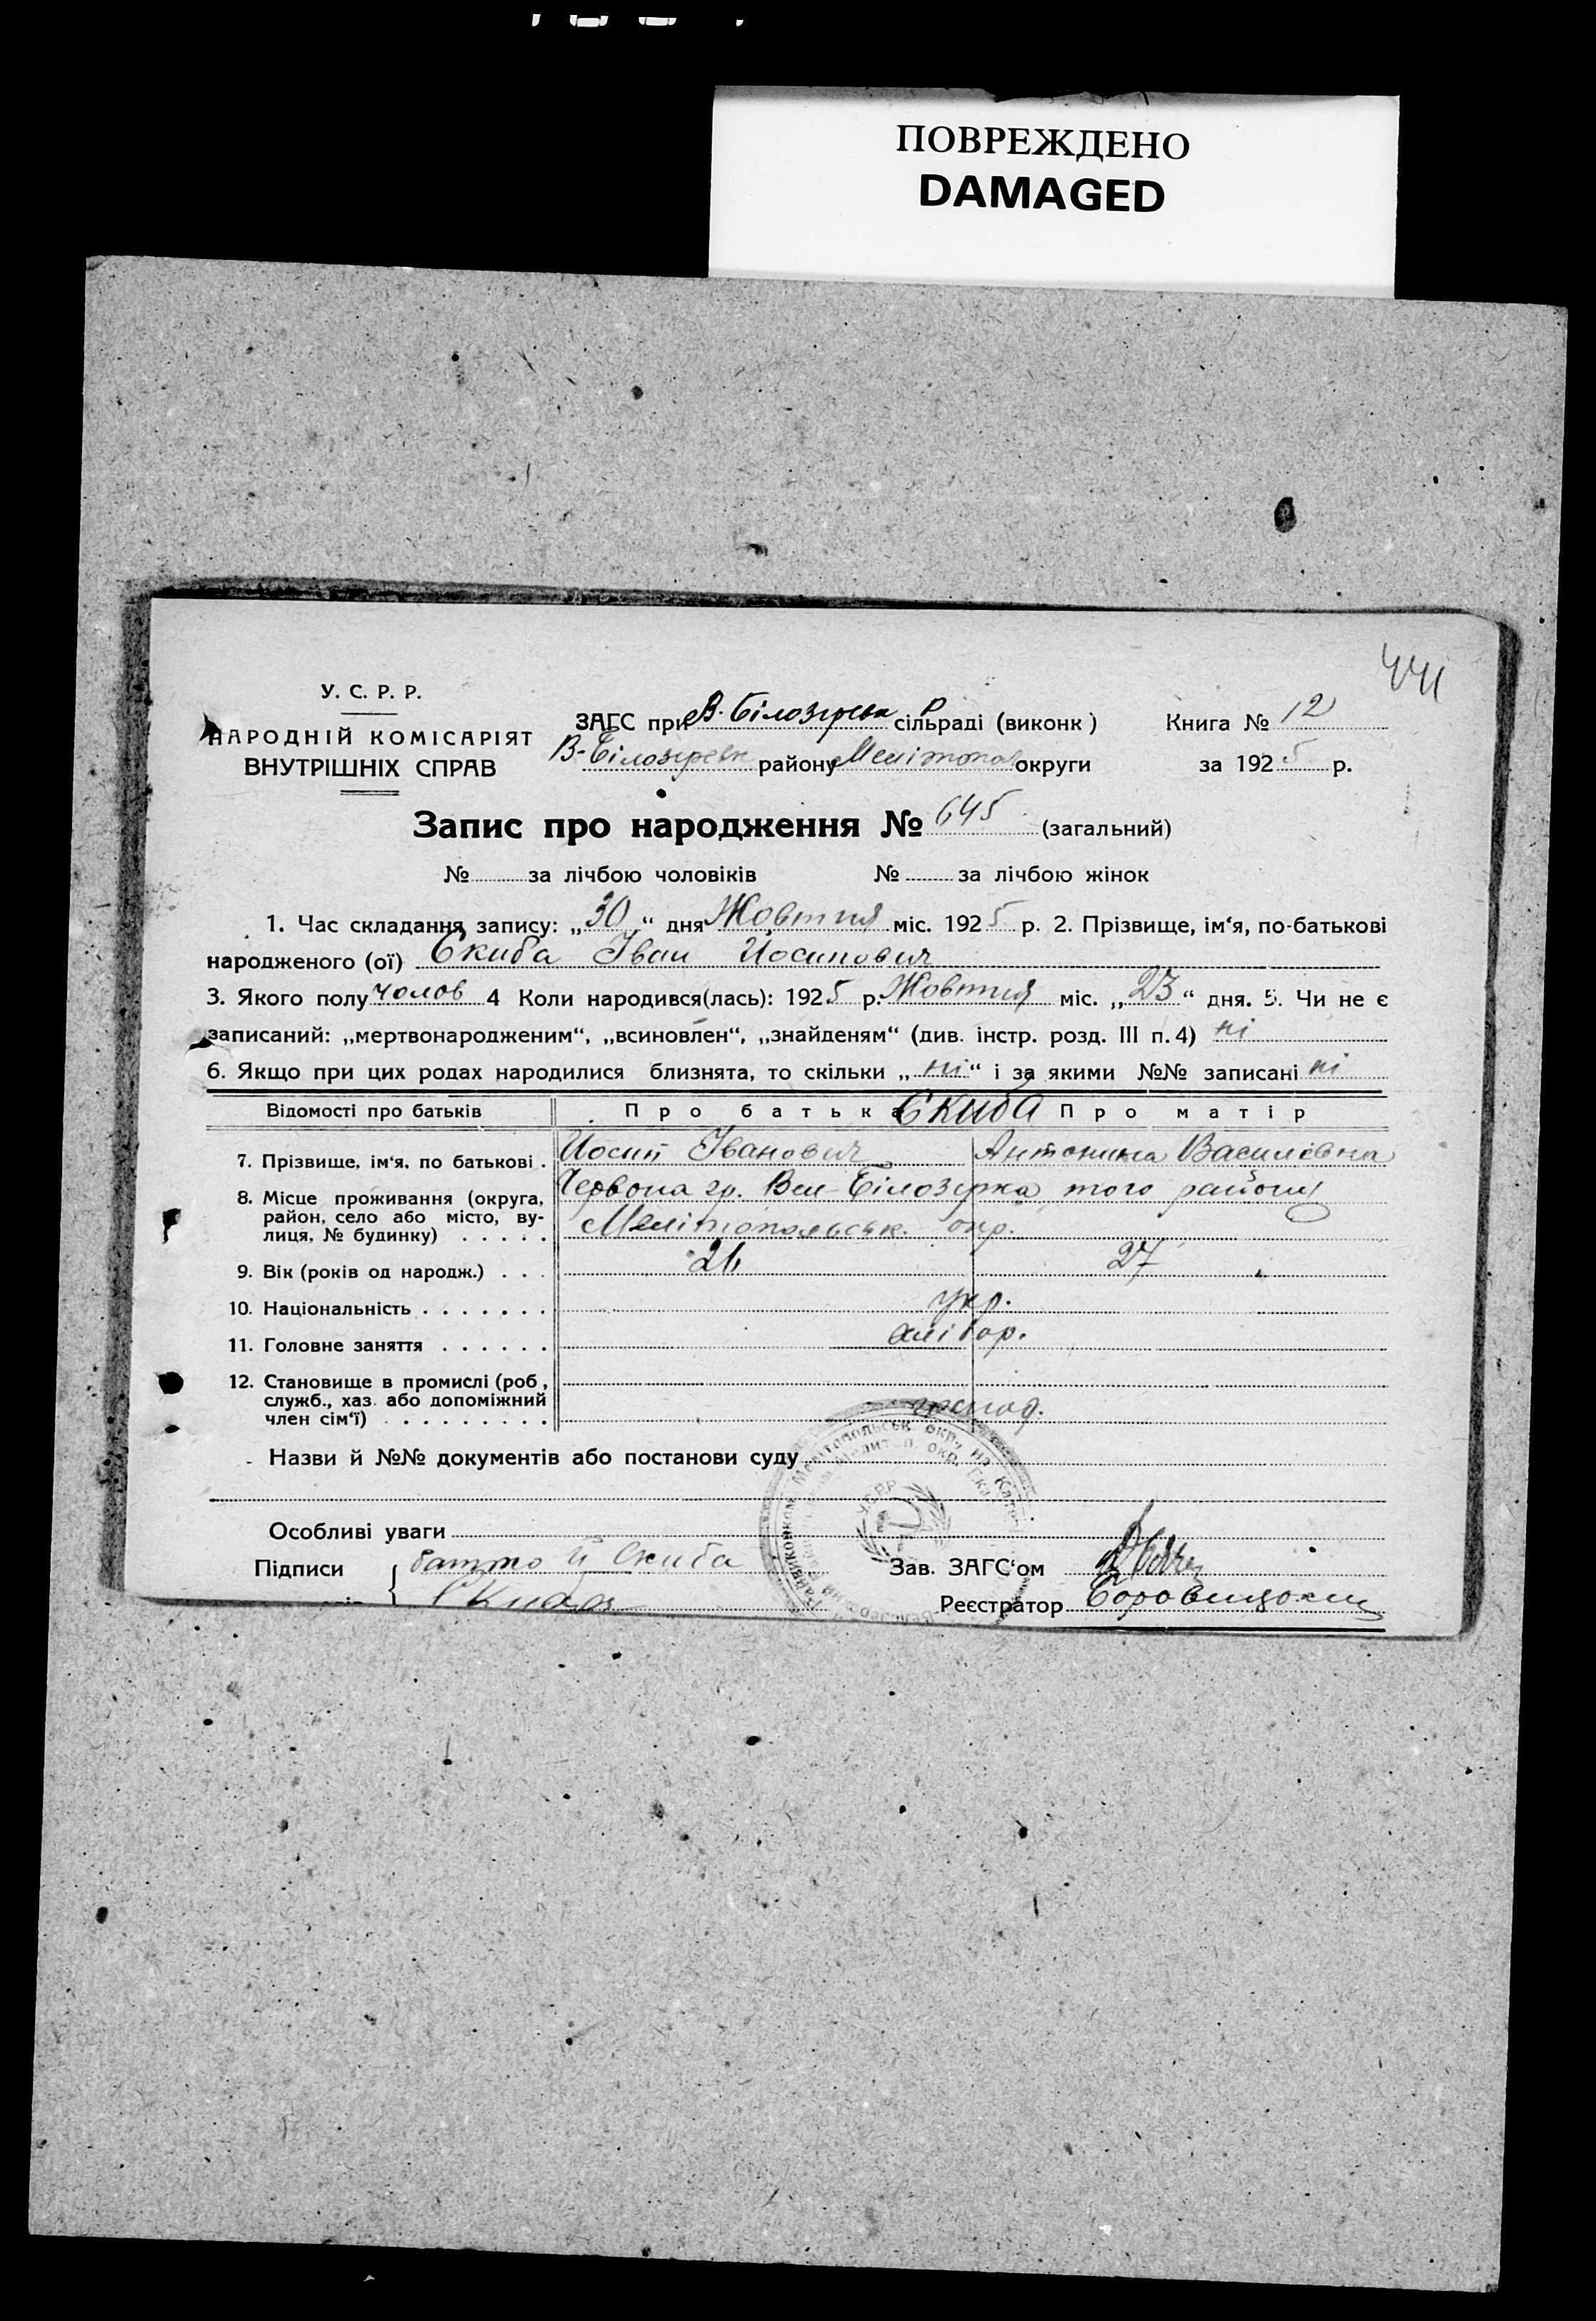 ПОВРЕЖДЕНО
DAMAGED
441
У. С. Р. Р.
НАРОДНІЙ КОМІСАРІЯТ
ВНУТРІШНІХ СПРАВ
ЗАГС при В-Білозерськ Р сільраді (виконк) Книга № 12
В-Білозерськ району Мелітопол округи за 1925 р.
Запис про народження № 645 (загальний)
№ за лічбою чоловіків № за лічбою жінок
1. Час складання запису: „30“ дня Жовтня міс. 1925 р. 2. Прізвище, ім‘я, по-батькові
народженого (ої) Скиба Іван Йосипович
3. Якого полу чолов 4 Коли народився(лась): 1925 р. Жовтня міс. „23“ дня. 5. Чи не є
записаний: „мертвонародженим“, „всиновлен“, „знайденям“ (див. інстр. розд. III п. 4) ні
6. Якщо при цих родах народилися близнята, то скільки „ні“ і за якими №№ записані ні
Відомості про батьків Про батька Скиба Про матір
7. Прізвище, ім‘я, по батькові . Йосип Іванович Антонина Василівна
8. Місце проживання (округа, район, село або місто, вулиця, № будинку) . . . . . Червона гр. Вел-Білозерка того району
Мелітопольськ. окр.
9. Вік (років од народж.) . . . 26 27
10. Національність . . . . . . . укр.
11. Головне заняття . . . . . . хлібор.
12. Становище в промислі (роб,
служб., хаз. або допоміжний
член сім‘ї) . . . . . . . . .
Назви й №№ документів або постанови суду
УСРР
Особливі уваги
Підписи батько Й Скиба Зав. ЗАГС‘ом
Скиба Реєстратор